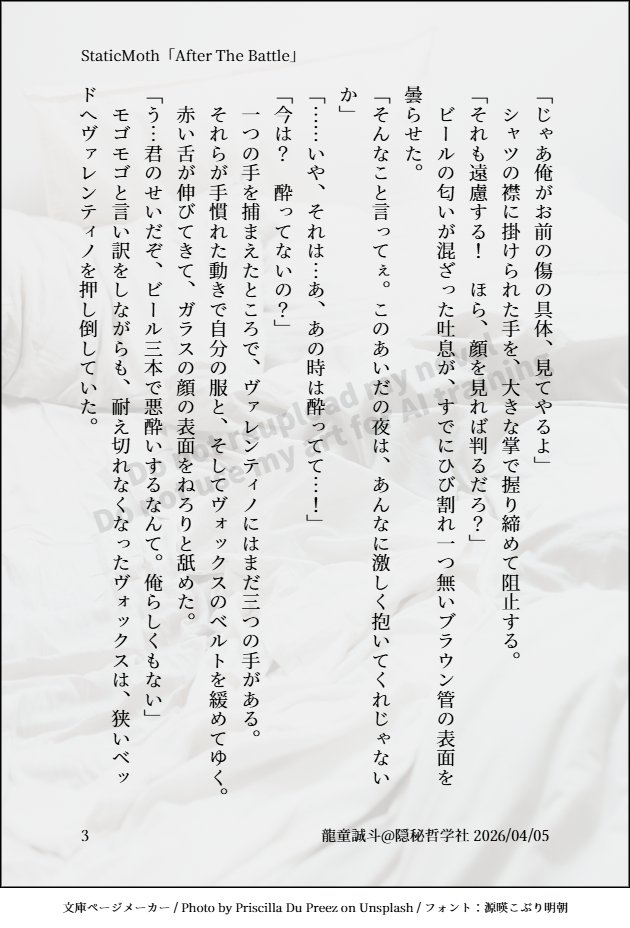 StaticMoth「After The Battle」
「じゃあ俺がお前の傷の具体、見てやるよ」
　シャツの襟に掛けられた手を、大きな掌で握り締めて阻止する。
「それも遠慮する！　ほら、顔を見れば判るだろ？」
　ビールの匂いが混ざった吐息が、すでにひび割れ一つ無いブラウン管の表面を
曇らせた。
「そんなこと言ってぇ。このあいだの夜は、あんなに激しく抱いてくれじゃない
か」
「……いや、それは…あ、あの時は酔ってて…！」
「今は？　酔ってないの？」
　一つの手を捕まえたところで、ヴァレンティノにはまだ三つの手がある。
　それらが手慣れた動きで自分の服と、そしてヴォックスのベルトを緩めてゆく。
　赤い舌が伸びてきて、ガラスの顔の表面をねろりと舐めた。
「う…君のせいだぞ、ビール三本で悪酔いするなんて。俺らしくもない」
　モゴモゴと言い訳をしながらも、耐え切れなくなったヴォックスは、狭いベッ
ドへヴァレンティノを押し倒していた。
Do not reupload my novel
Do not use my art for AI training
3
龍童誠斗@隠秘哲学社 2026/04/05
文庫ページメーカー / Photo by Priscilla Du Preez on Unsplash / フォント：源暎こぶり明朝